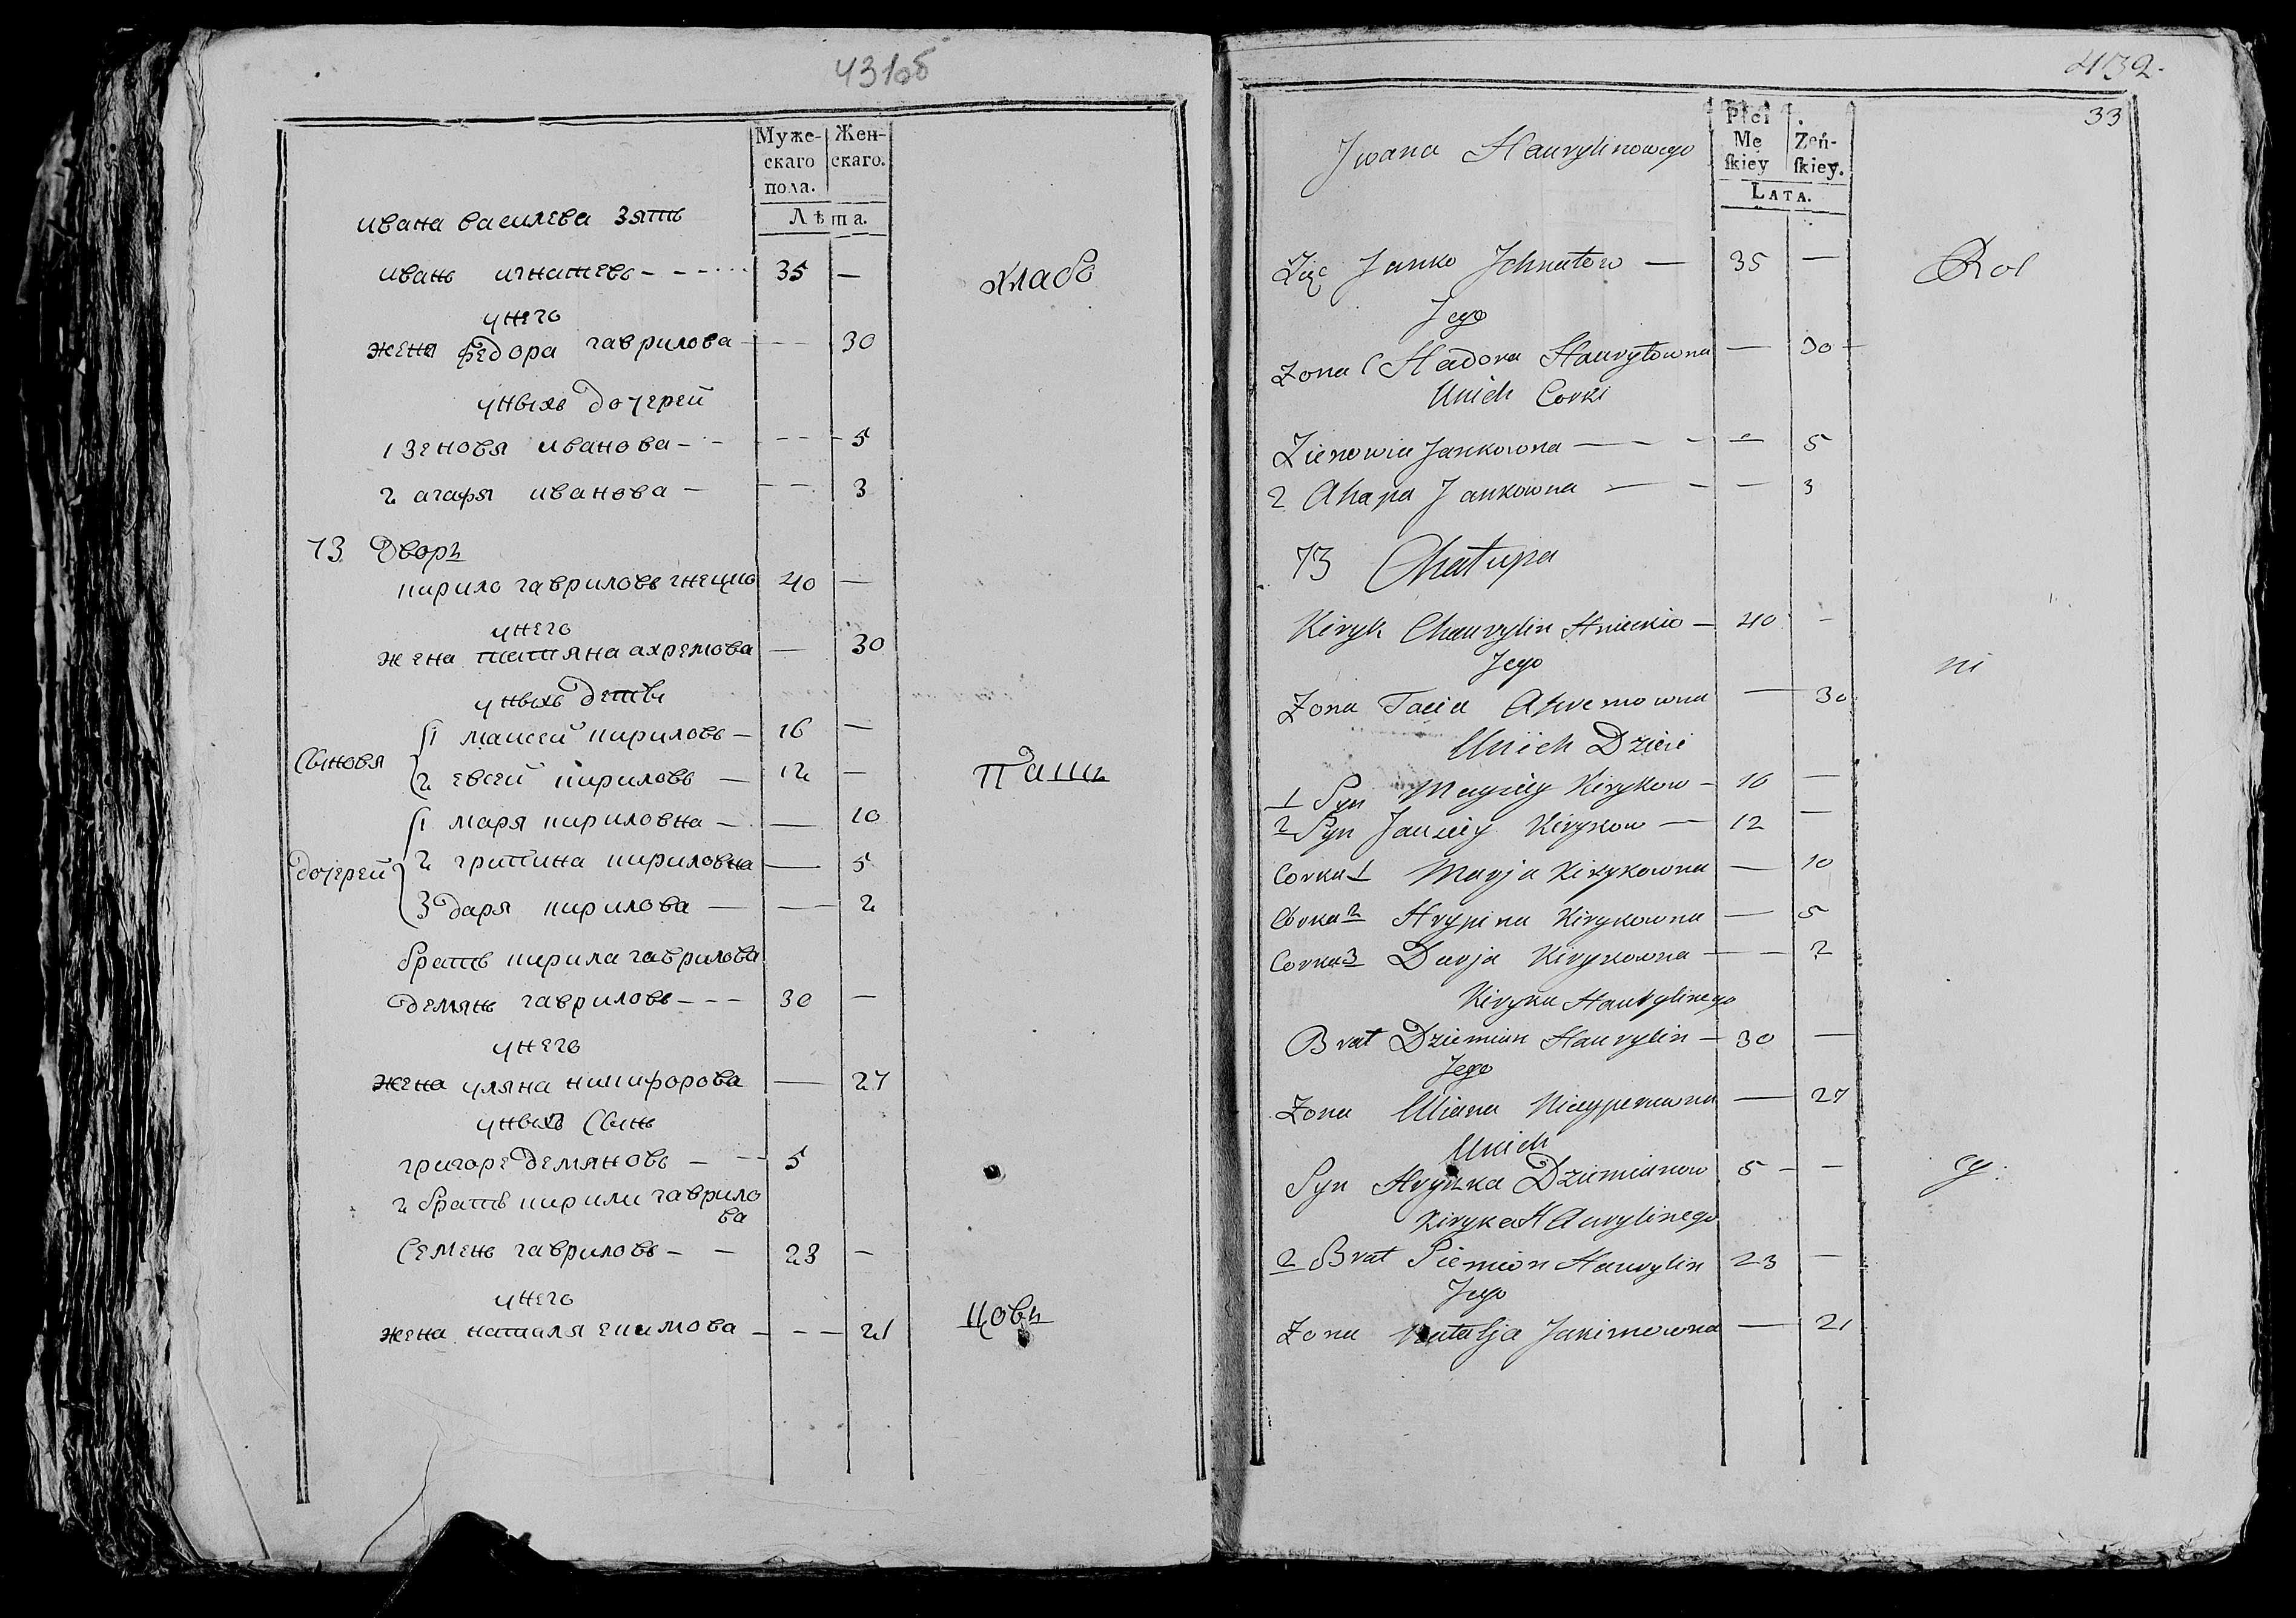 431об
Муже- Жен-
скаго скаго.
пола.
Лѣта.
ивана василева зять
иванъ игнатевъ - - - - - 35 —
унего
жена федора гаврилова - - - 30
уныхъ дочерей
1 зеновя иванова - - - - - 5
2 агафя иванова - - - 3
73 дворъ
кирило гавриловъ гнецко 40 —
унего
жена татяна ахремова — 30
уныхъ дети
сыновя
1 маисей кириловъ — 16 —
2 евсей кириловъ — 12 —
дочерей
1 маря кириловна — — 10
2 грипина кириловна — 5
3 даря кирилова — — 2
братъ кирила гаврилова
демянъ гавриловъ - - - 30 —
унего
жена уляна никифорова — 27
уныхъ сынъ
григоре демяновъ — - - 5
2 братъ кирили гаврило
ва
семенъ гавриловъ - - 23 —
унего
жена наталя екимова - - - 21
хлабо
паши
цовъ
432.
33
Płci
Mę Żeń-
skiey skiey.
LATA.
Jwana Haurylinowego
Zięć Janko Jhnatow — 35 —
Jego
Zona Hadora Hauryłowna — 30 -
Unich Corki
Zienowia Jankowna — — - — 5
2 Ahapa Jankowna — - — 3
73 Chałupa
Kiryk Chaurylin Hnieckio — 40 -
Jego
Zona Tacia Ahremowna — 30
Unich Dzieci
1 Syn Maysiey Kirykow - 16 —
2 Syn Jausiey Kirykow — 12 —
Corka 1 Marja Kirykowna — 10
Corka 2 Hrypina Kirykowna — 5
Corka 3 Darja Kirykowna — — 2
Kiryka Haurylinego
Brat Dziemian Haurylin — 30 —
Jego
Zona Uliana Niczyperowna — 27
Unich
Syn Hryszka Dziemianow 5 - -
Kiryka Haurylinego
2 Brat Siemion Haurylin 23 —
Jego
Zona Natalja Jakimowna — 21
Rol
ni
cy.